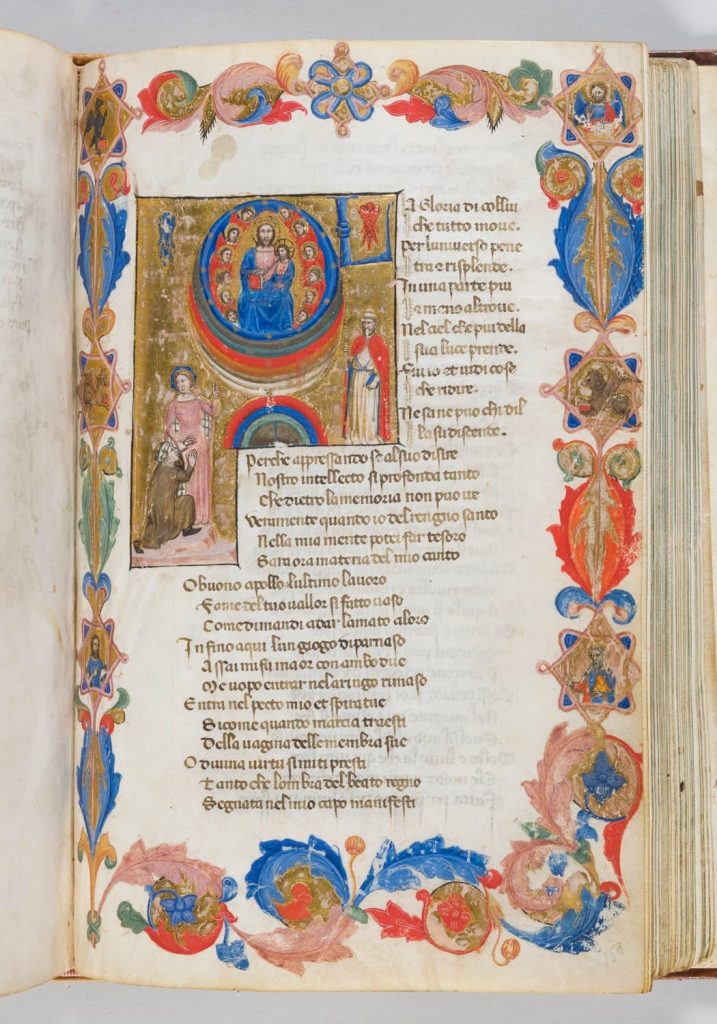 La Gloria di collui
che tutto move.
Per luniverso pene
tra et risplende.
In una parte piu
e meno altrove.
Nel ciel che piu della
sua luce prende.
Fui io et vidi cose
che ridire.
Ne sa ne puo chi di l
la su discente.
Perche appressando se al suo disire
Nostro intellecto si profonda tanto
Che dietro la memoria non puo ire
Veramente quando io del rengno santo
Nella mia mente potei far tesoro
Sara ora materia del mio canto
O buono apollo lultimo lavoro
Fome del tuo vallor si fatto vaso
Come dimandi a dar lamato aloro
In fino a qui lun giogo di parnaso
Assai mi fu ma or con ambo due
Me uopo entrar nel aringo rimaso
Entra nel pecto mio et spira tue
Si come quando marcia traesti
Della vagina delle membra sue
O divina virtu si mi ti presti
Tanto che lombra del beato regno
Segnata nel mio capo manifesti